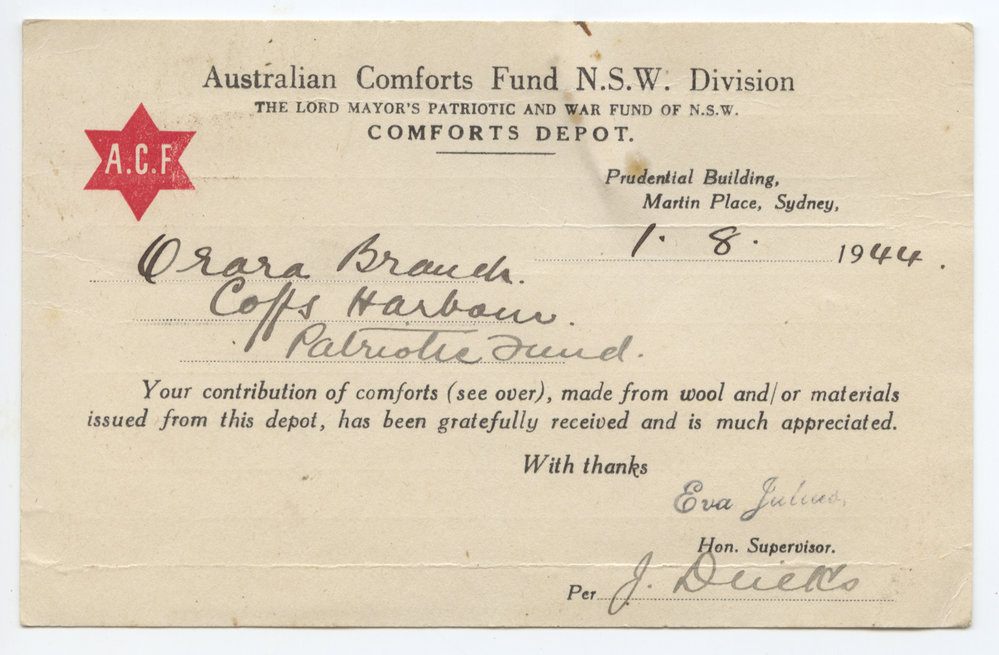 Australian Comforts Fund N.S.W. Division
THE LORD MAYOR'S PATRIOTIC AND WAR FUND OF N.S.W.
COMFORTS DEPOT.
A.C.F
Prudential Building,
Martin Place, Sydney,
1. 8. 1944.
Orara Branch.
Coffs Harbour.
Patriotic Fund.
Your contribution of comforts (see over), made from wool and/or materials
issued from this depot, has been gratefully received and is much appreciated.
With thanks
Eva Julius.
Hon. Supervisor.
Per J.